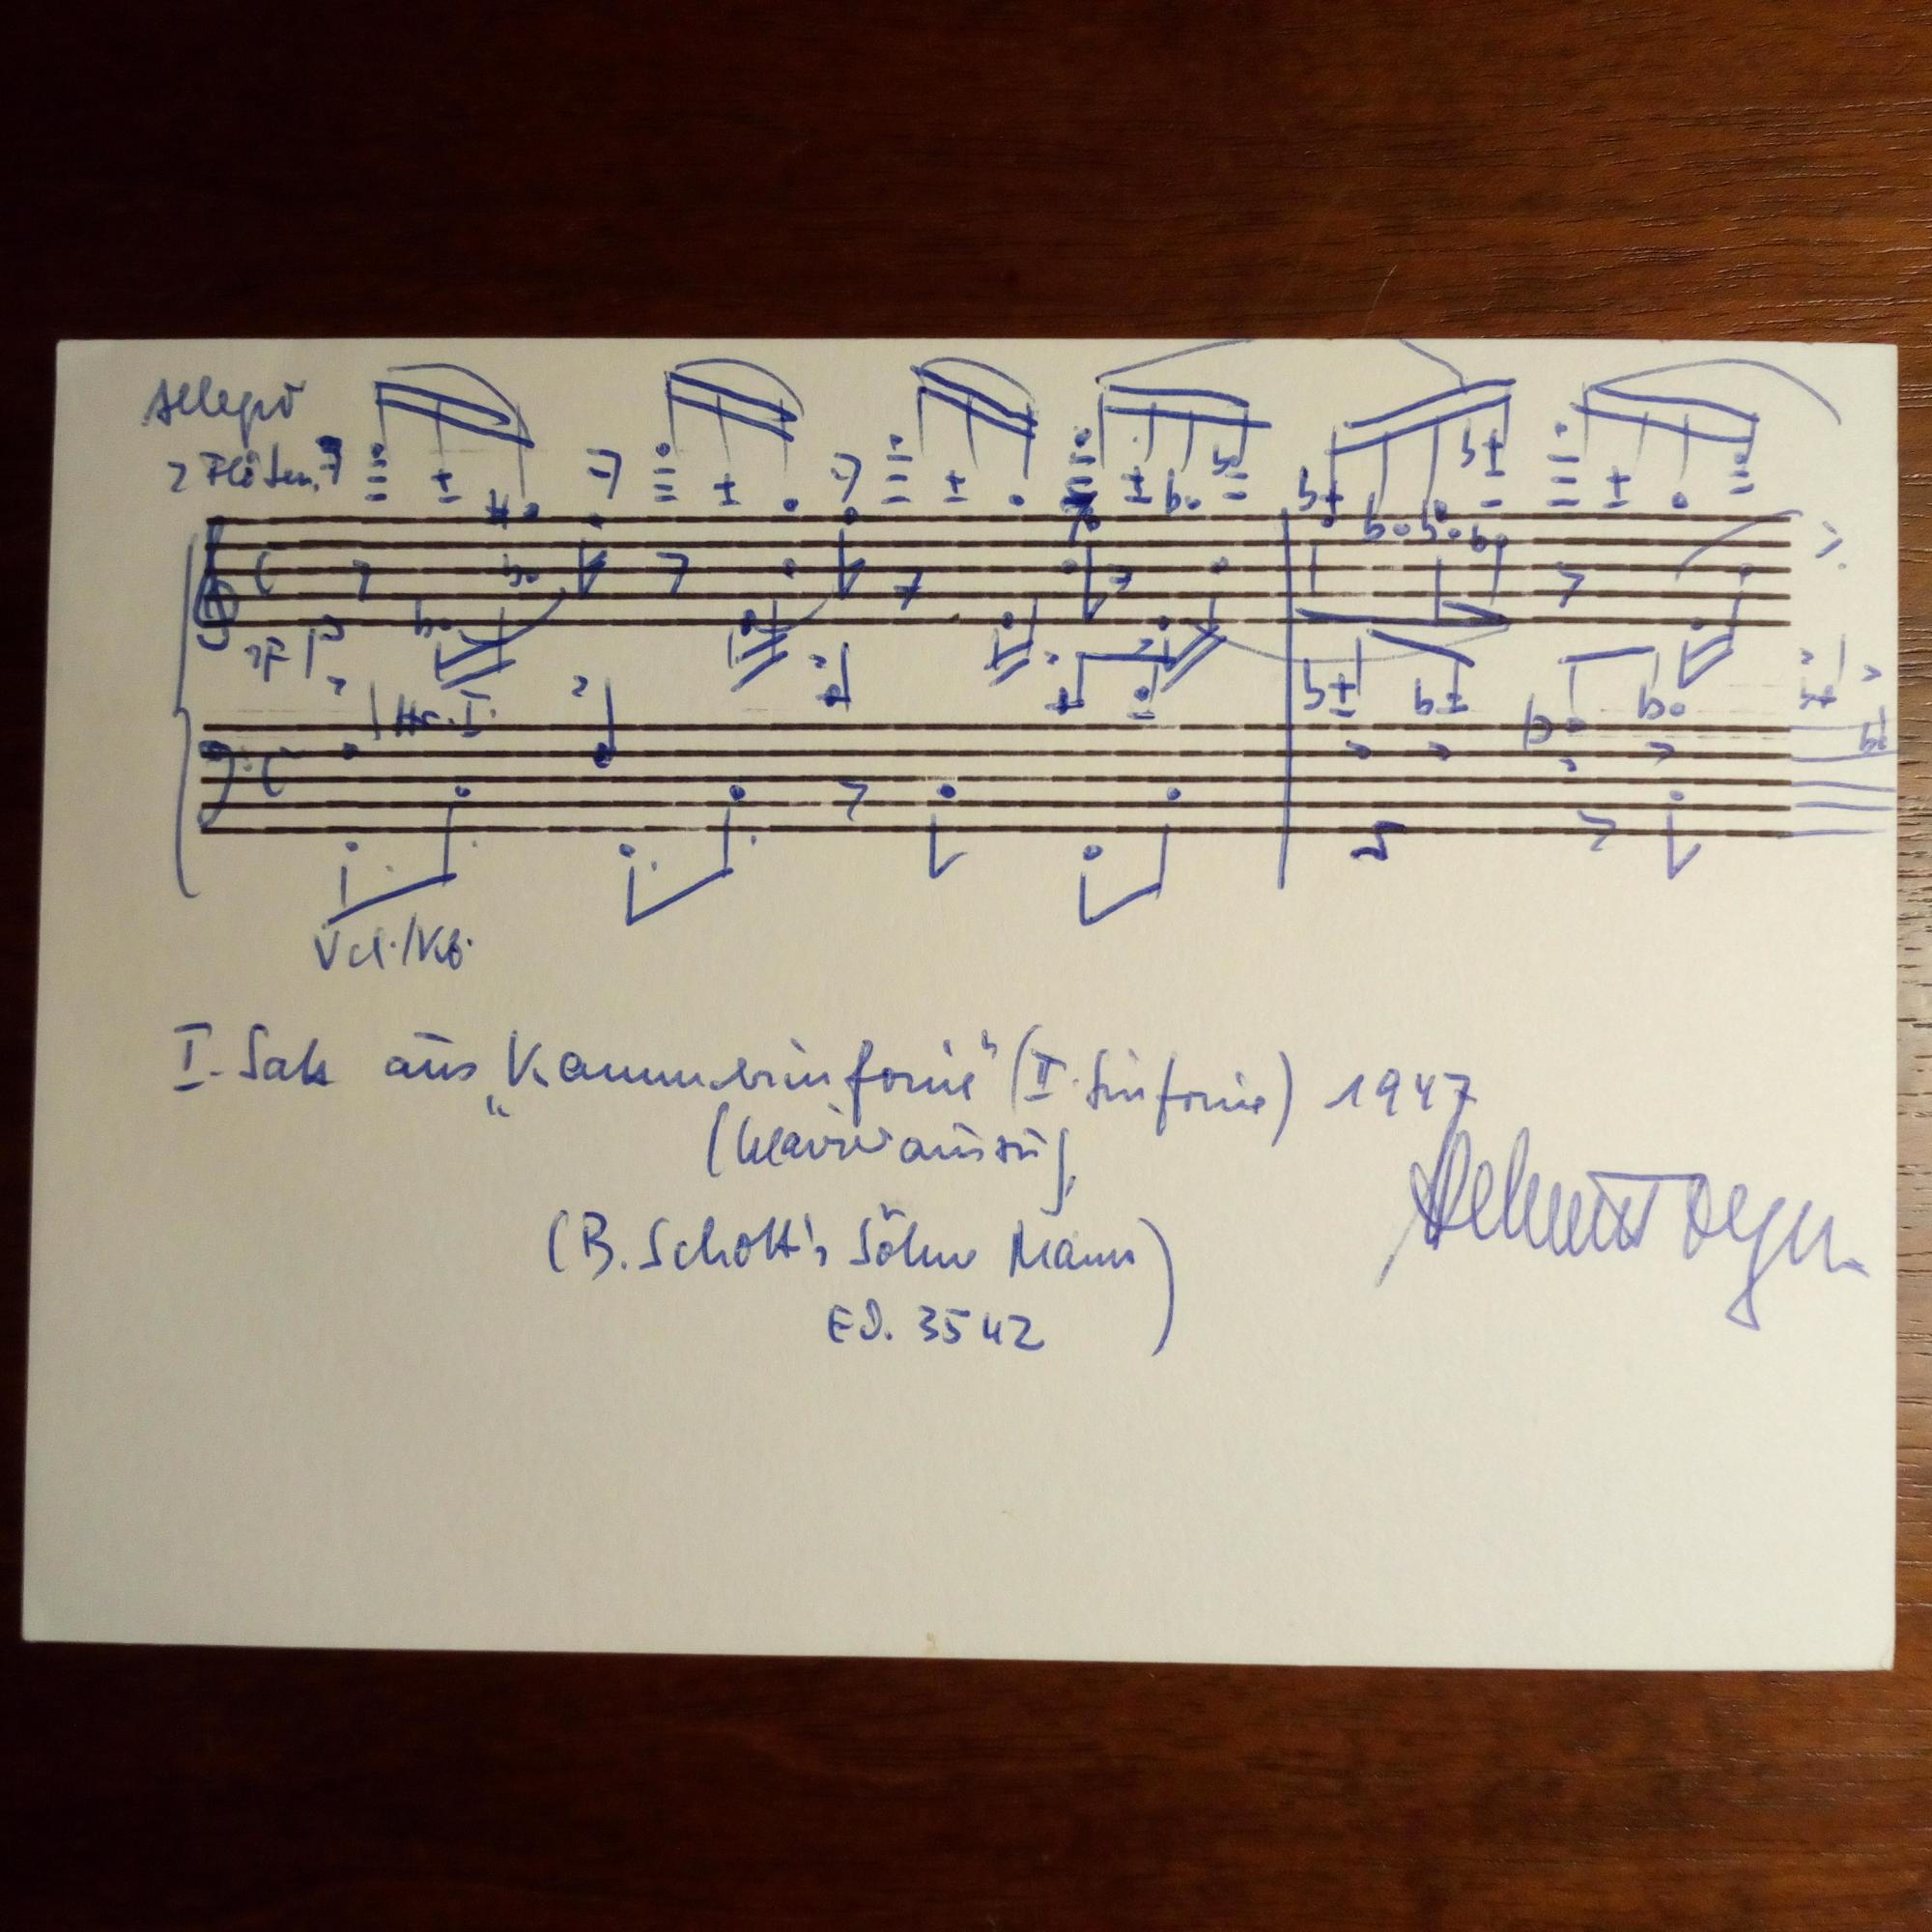 Allegro
2 Flöten
Hr. I.
Vcl./Kb.
I. Satz aus „Kammersinfonie" (II. Sinfonie) 1947
(Klavierauszug
(B. Schott's Söhne Mainz)
ED. 3542
Helmut Degen